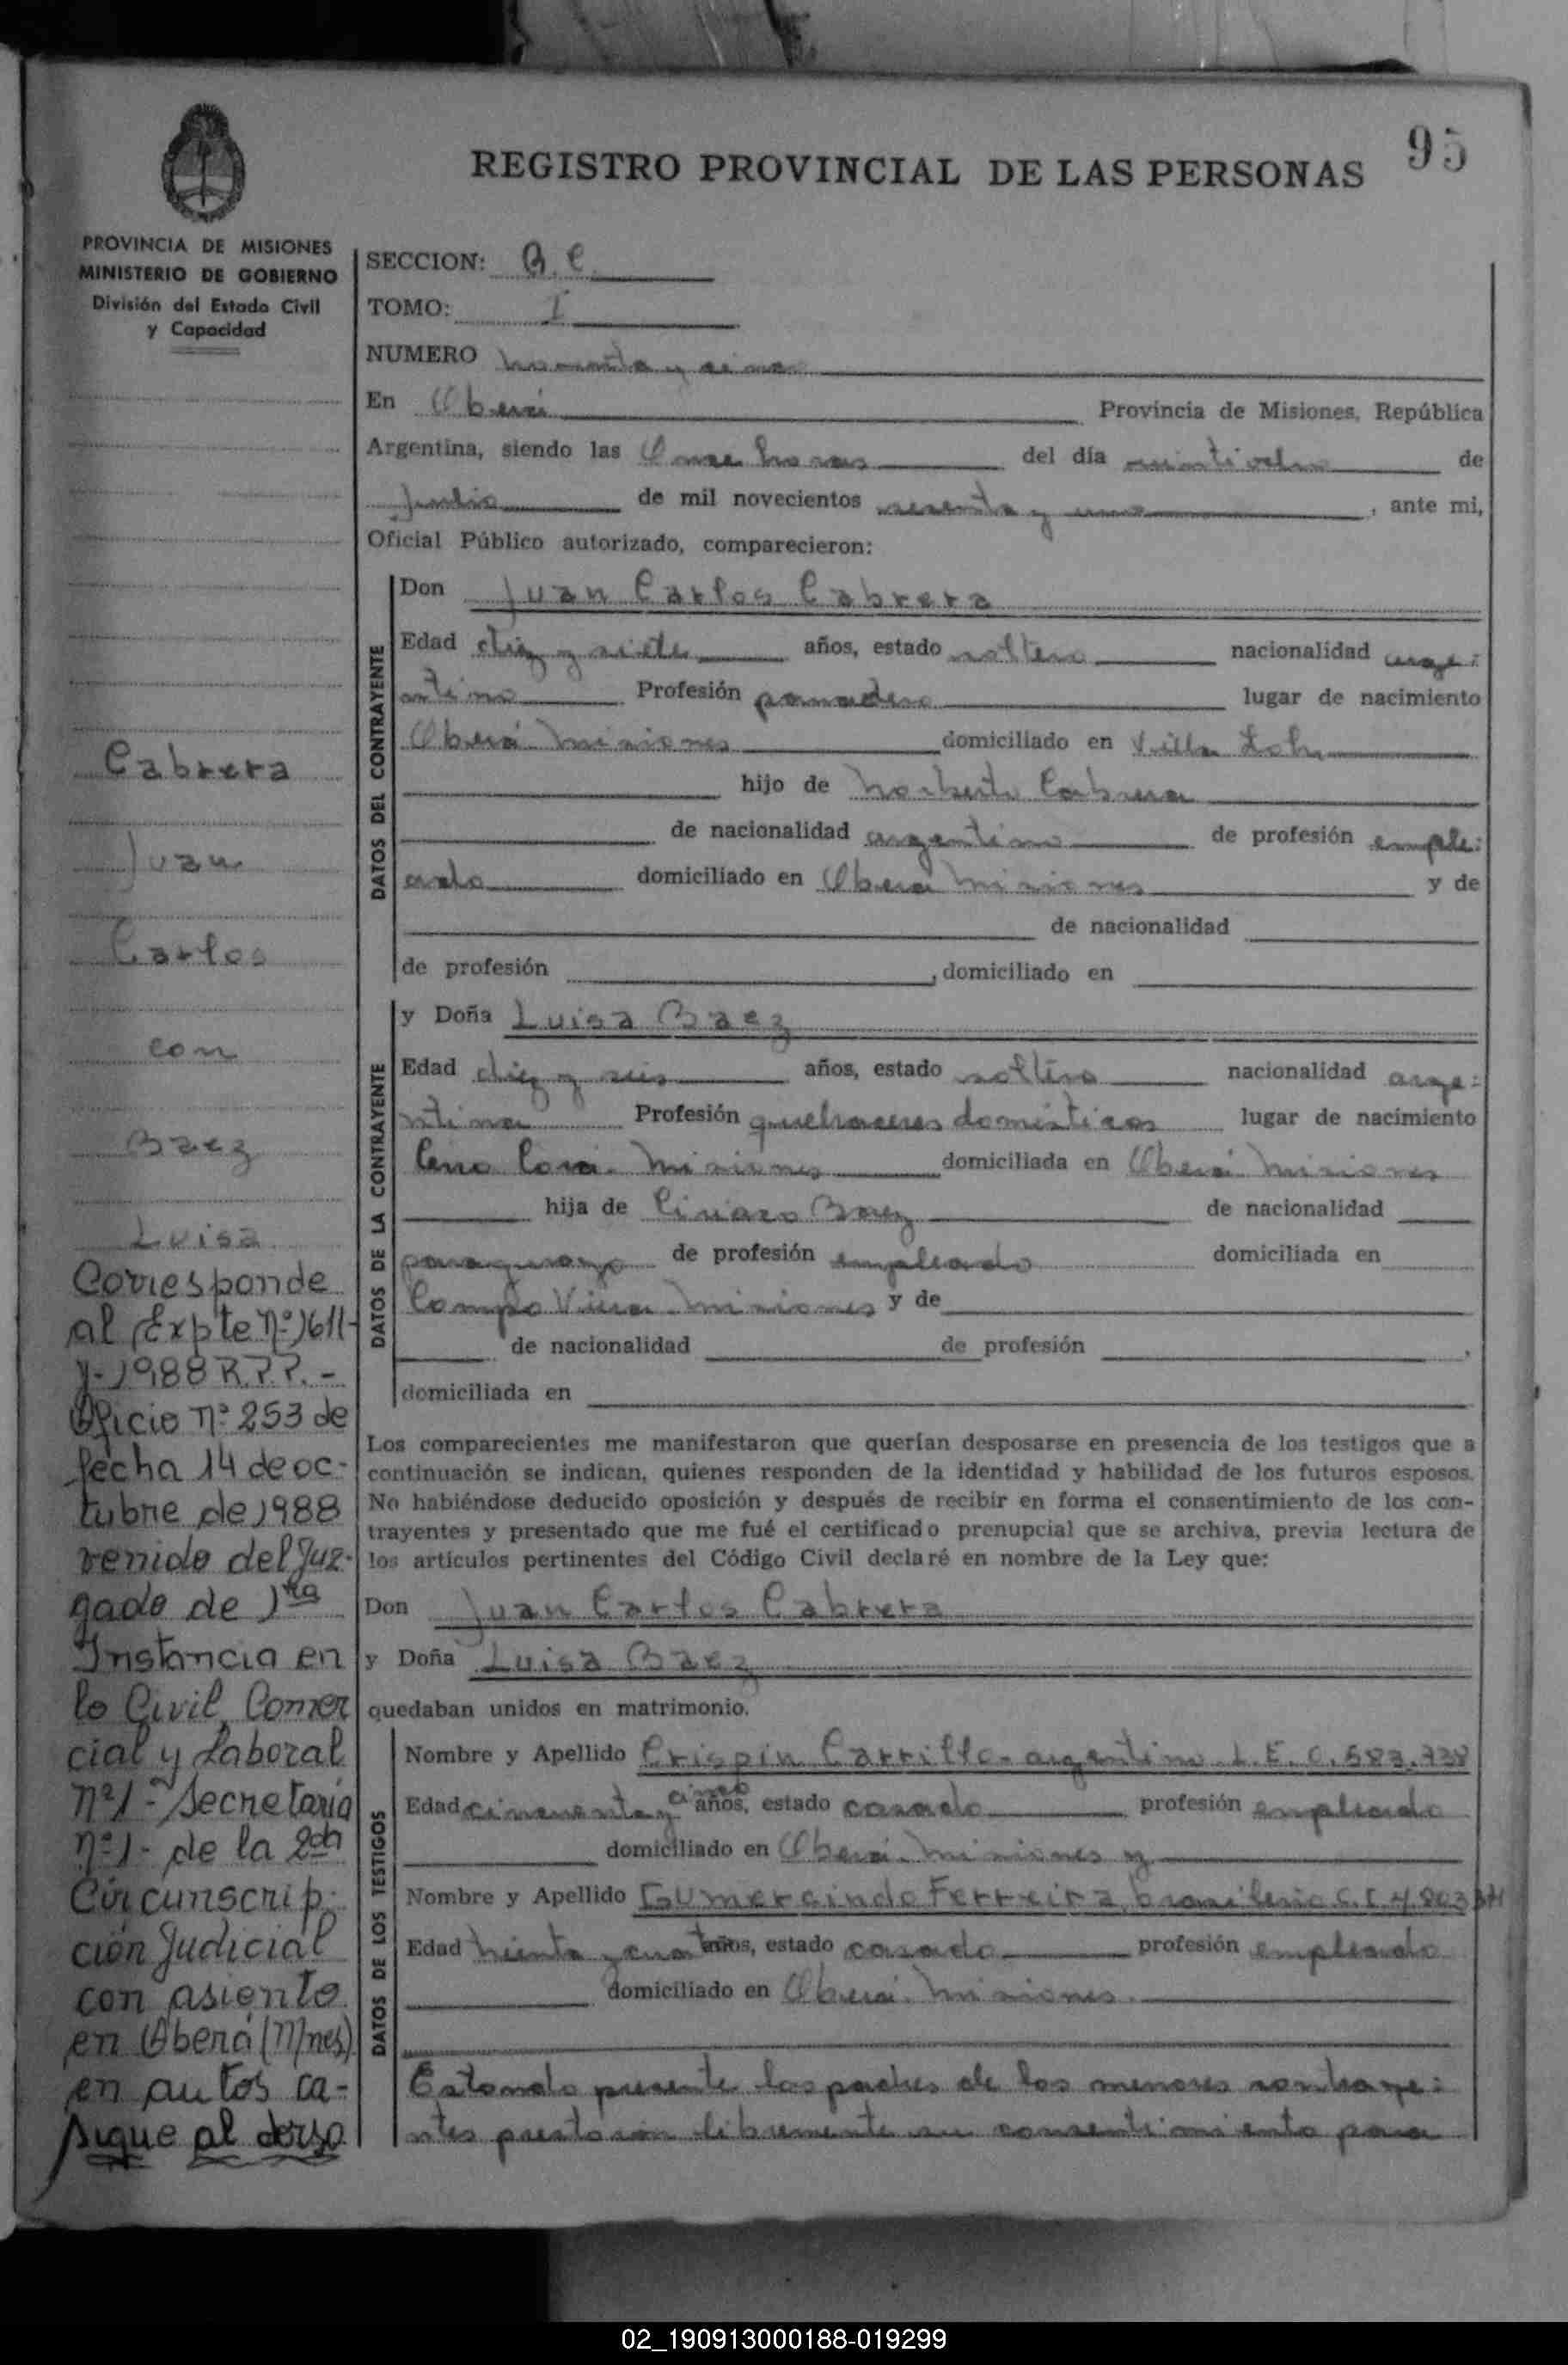 95
REGISTRO PROVINCIAL DE LAS PERSONAS
PROVINCIA DE MISIONES
MINISTERIO DE GOBIERNO
División del Estado Civil
y Capacidad
SECCION: B. C.
TOMO: I
NUMERO noventa y cinco
En Oberá Provincia de Misiones, República
Argentina, siendo las Once horas del día veintiocho de
Julio de mil novecientos sesenta y uno, ante mi,
Oficial Público autorizado, comparecieron:
DATOS DEL CONTRAYENTE
Don Juan Carlos Cabrera
Edad diez y siete años, estado soltero nacionalidad arge:
ntino Profesión panadero lugar de nacimiento
Oberá Misiones domiciliado en Villa
hijo de Norberto Cabrera
de nacionalidad argentino de profesión emple:
ado domiciliado en Oberá Misiones y de
de nacionalidad
de profesión , domiciliado en
DATOS DE LA CONTRAYENTE
y Doña Luisa Baez
Edad diez y seis años, estado soltera nacionalidad arge:
ntina Profesión quehaceres domésticos lugar de nacimiento
Cerro Corá. Misiones domiciliada en Oberá Misiones
hija de Ciriaco Baez de nacionalidad
paraguayo de profesión empleado domiciliada en
Campo Viera. Misiones y de
de nacionalidad de profesión ,
domiciliada en
Los comparecientes me manifestaron que querían desposarse en presencia de los testigos que a
continuación se indican, quienes responden de la identidad y habilidad de los futuros esposos.
No habiéndose deducido oposición y después de recibir en forma el consentimiento de los con-
trayentes y presentado que me fué el certificado prenupcial que se archiva, previa lectura de
los artículos pertinentes del Código Civil declaré en nombre de la Ley que:
Don Juan Carlos Cabrera
y Doña Luisa Baez
quedaban unidos en matrimonio.
DATOS DE LOS TESTIGOS
Nombre y Apellido Crispin Carrillo. argentino L.E. 0.583.738
Edad cincuenta y cinco años, estado casado profesión empleado
domiciliado en Oberá. Misiones y
Nombre y Apellido Gumercindo Ferreira, brasilero C.I. 4.803
Edad treinta y cuatro años, estado casado profesión empleado
domiciliado en Oberá. Misiones.
Estando presente los padres de los menores contraye:
ntes prestaron libremente su consentimiento para
Cabrera
Juan
Carlos
con
Baez
Luisa
Corresponde
al Expte Nº 1611-
y-1988 R.P.P.-
Oficio nº 253 de
fecha 14 de oc-
tubre de 1988
venido del Juz-
gado de 1ra
Instancia en
lo Civil, Comer
cial y Laboral
nº 1-Secretaria
nº 1- de la 2da
Circunscrip-
ción Judicial
con asiento
en Oberá (Mnes)
en autos ca-
sigue al dorso
02_190913000188-019299